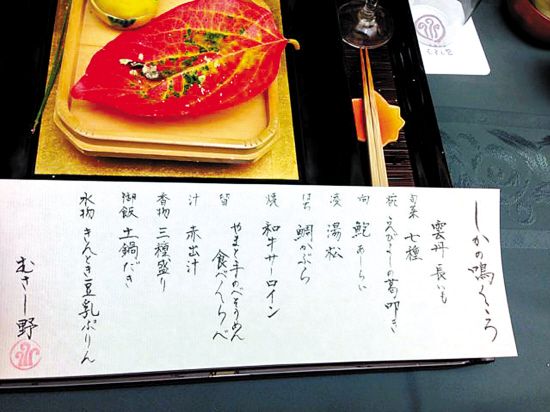 しかの鳴くころ
雲丹 長いも
旬菜 七種
椀 えびしんじょうの葛叩き
向 鮑 あしらい
湯松
鉢 鯛かぶら
焼 和牛サーロイン
やまと手のべそうめん
食べくらべ
汁 赤出汁
香物 三種盛り
御飯 土鍋だき
水物 きんとき豆乳ぷりん
むさし野